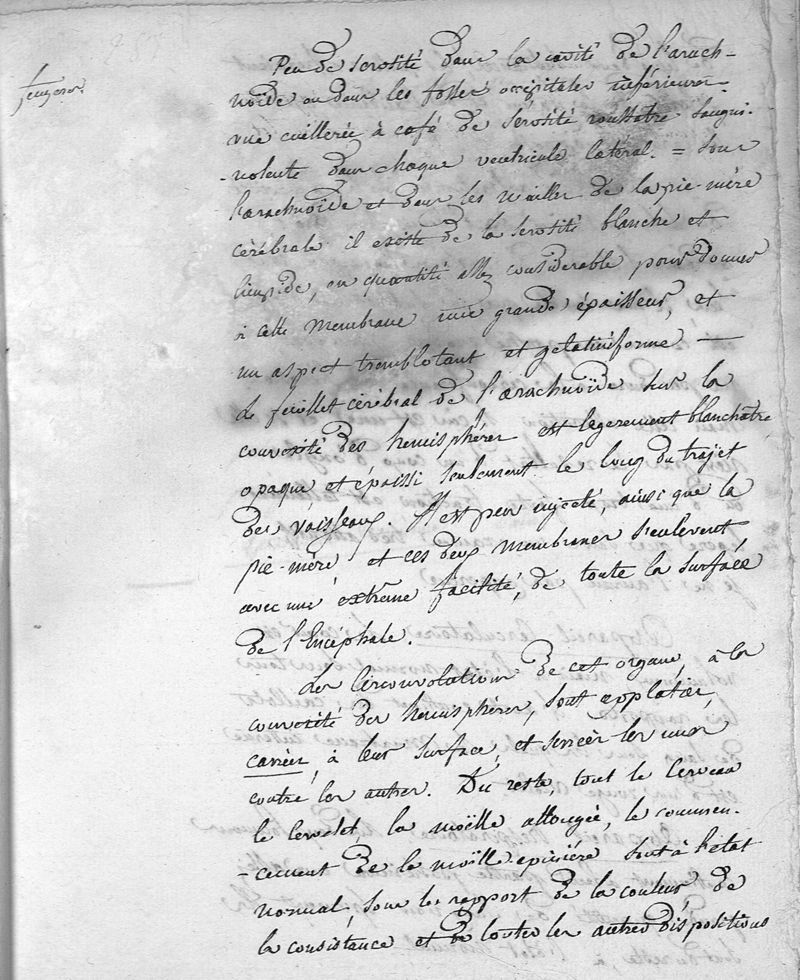 Peu de serosité dans la cavité de l'arach-
noïde ou dans les fosses occipitales inférieures.
une cuillerée à café de sérosité roussatre sangui-
-nolente dans chaque ventricule latéral. = sous
l'arachnoïde et dans les mailles de la pie-mère
cérébrale il existe de la serosité blanche et
limpide, en quantité assez considerable pour donner
à cette membrane une grande épaisseur, et
un aspect tremblotant et gelatiniforme —
Le feuillet cérébral de l'arachnoïde sur la
convexité des hemisphères est légerement blanchatre
opaque et épaissi seulement le long du trajet
des vaisseaux. Il est peu injecté, ainsi que la
pie-mère et ces deux membranes s'enlevent
avec une extrême facilité, de toute la surface
de l'Encéphale.
Les Circonvolutions de cet organe, à la
convexité des hemisphères, sont applaties,
carrées, à leur surface, et serrées les unes
contre les autres. Du reste, tout le Cerveau
le Cervelet, la moëlle allongée, le commen-
-cement de la moëlle epinière sont à l'etat
normal, sous le rapport de la couleur, de
la consistance et de toutes les autres dispositions